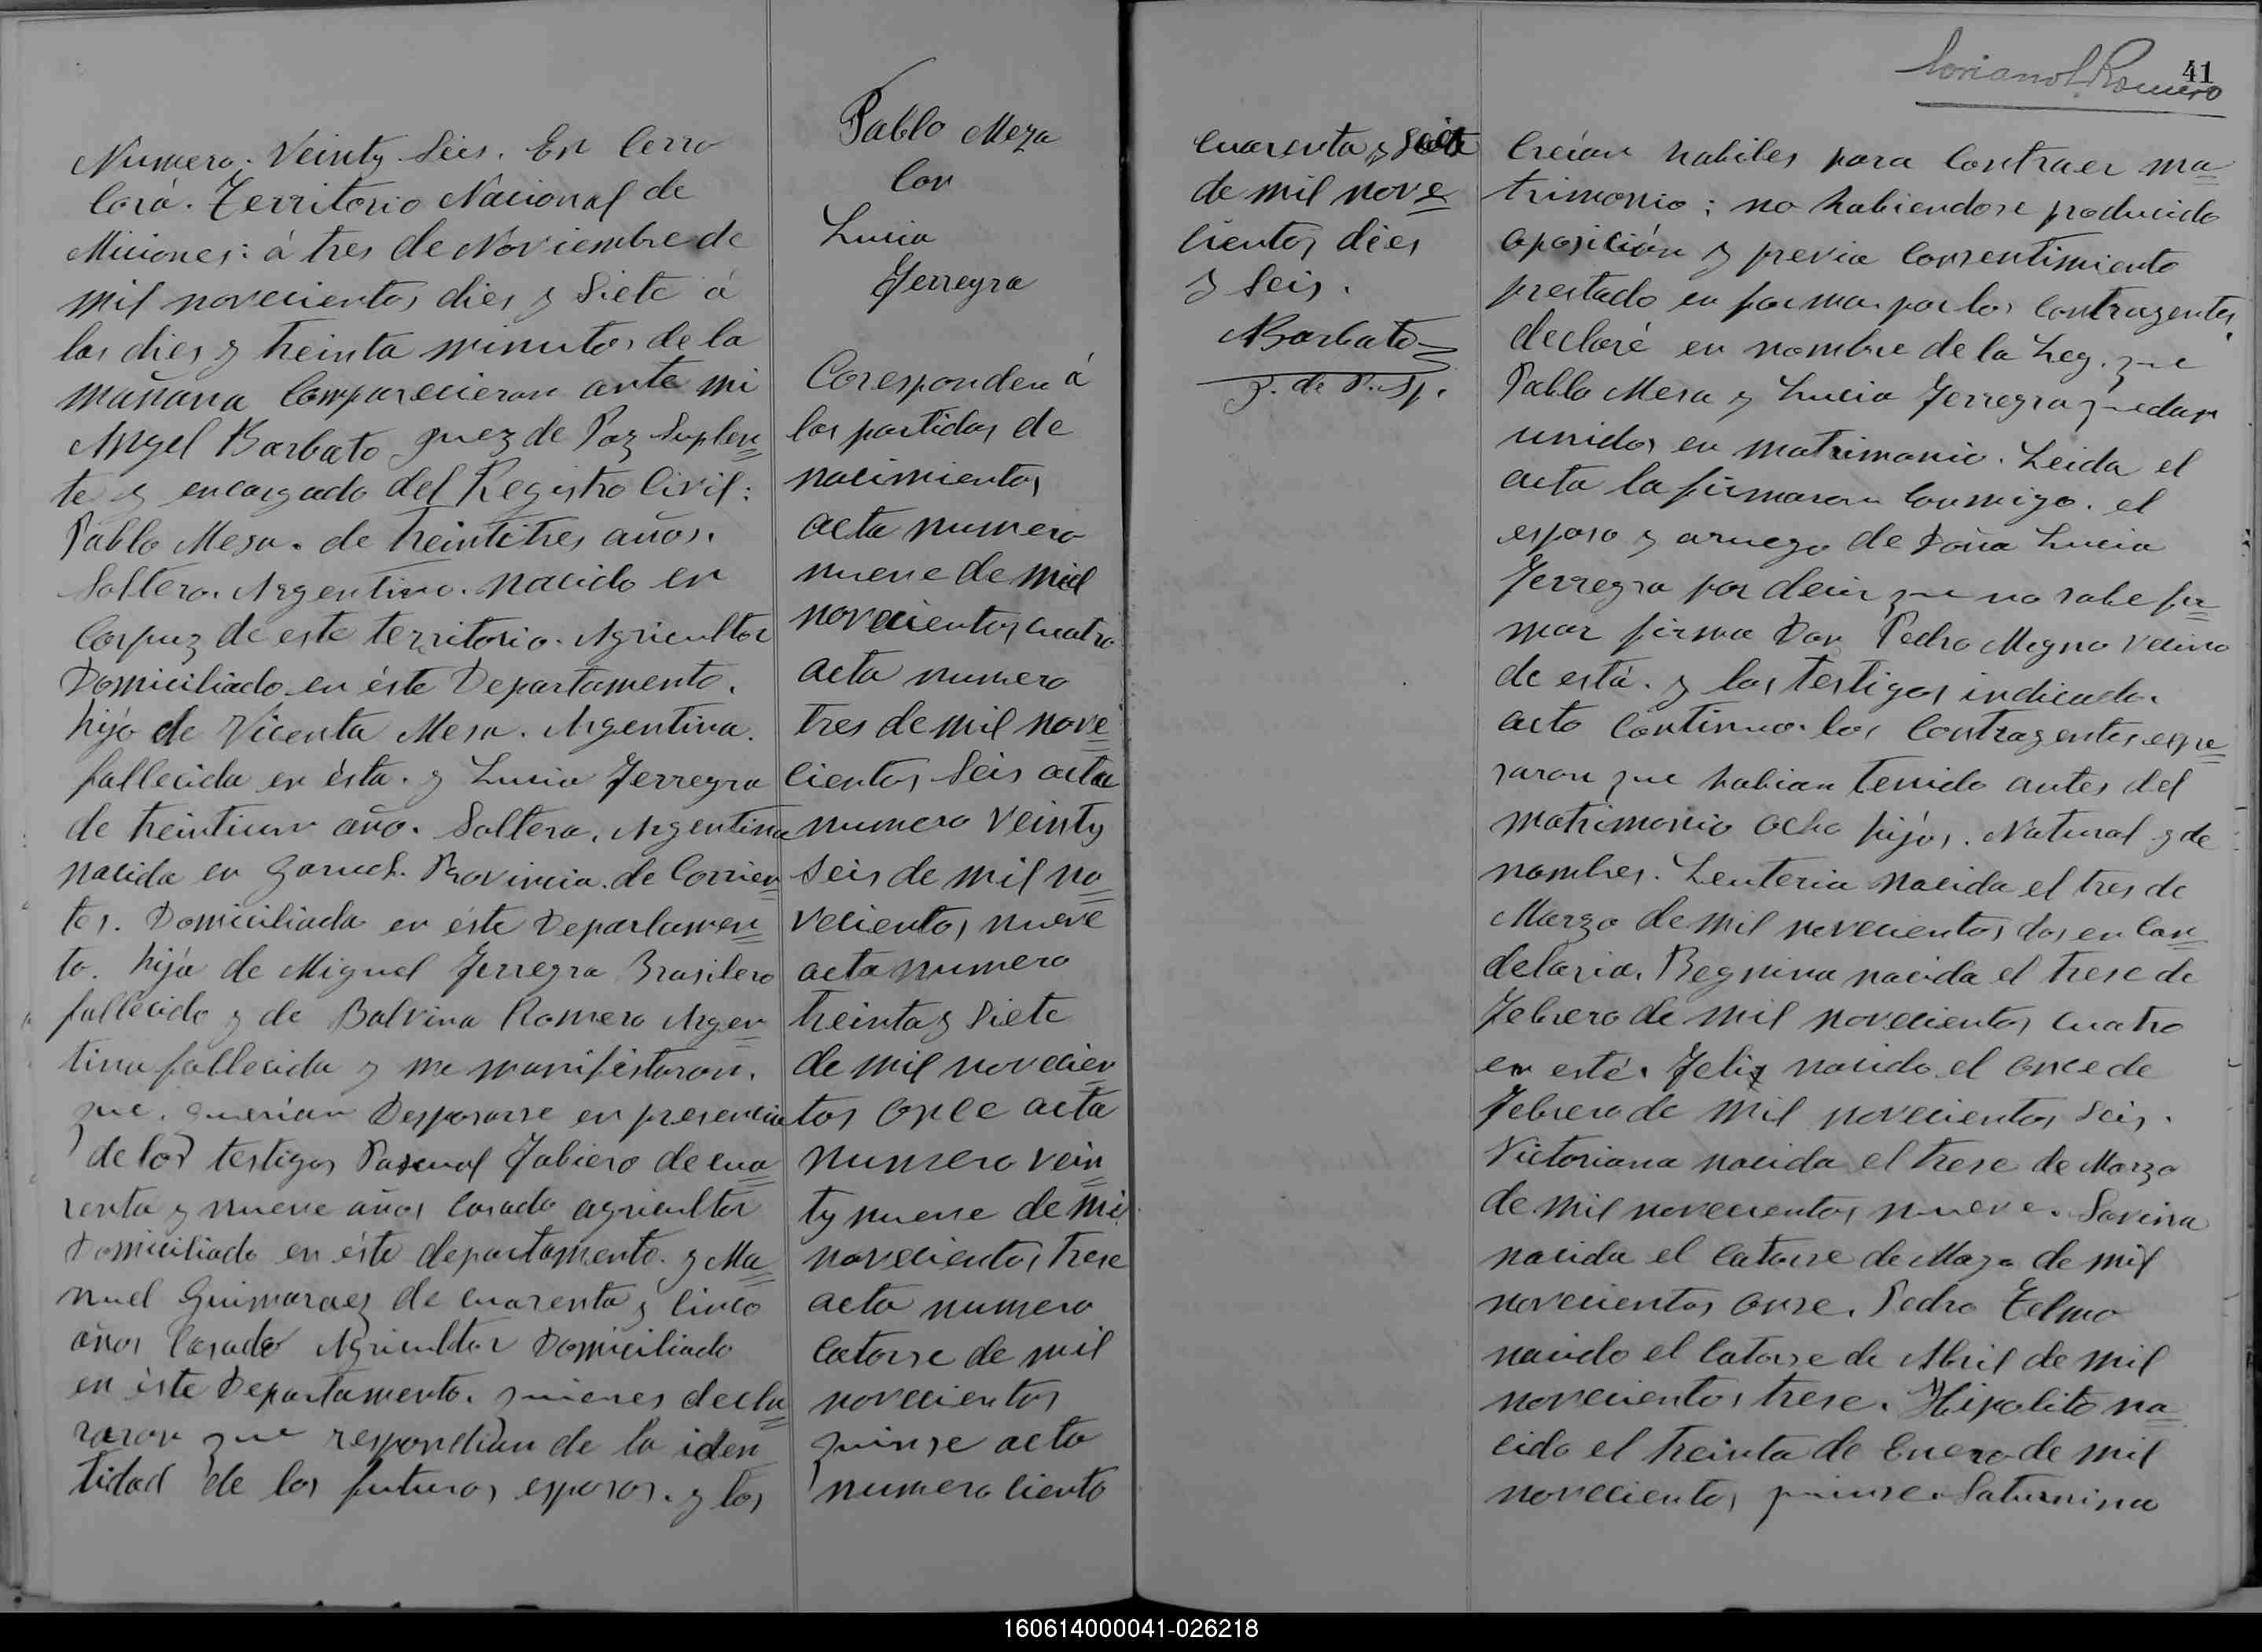 Numero. Veinty Seis. En Cerro
Corá. Territorio Nacional de
Miciones: á tres de Noviembre de
mil novecientos dies y Siete á
las dies y treinta minutos de la
mañana Comparecieron ante mi
Angel Barbato Juez de Paz Suplen
te y encargado del Registro Civil:
Pablo Mesa. de treintitres años.
Soltero. Argentino. nacido en
Corpuz de este territorio. Agricultor
Domiciliado en éste Departamento.
hijo de Vicenta Mesa. Argentina.
fallecida en ésta. y Lucia Ferreyra
de treintiun año. Soltera. Argentina
nacida en Garuch. Provincia. de Corrien
tes. Domiciliada en éste Departamen
to. hija de Miguel Ferreyra Brasilero
fallecido y de Balvina Romero Argen
tina fallecida y me manifestaron.
que. querian Desposarse en presencia
de los testigos Pascual Fabiero de cua
renta y nueve años Casado agricultor
Domiciliado en éste departamento. y Ma
nuel Guimaraez de cuarenta y cinco
años Casado Agricultor Domiciliado
en éste Departamento. quienes decla
raron que respondian de la iden
tidad de los futuros esposos. y los
Pablo Meza
Con
Lucia
Ferreyra
Coresponden á
las partidas de
nacimientos
acta numero
nueve de mil
novecientos cuatro
acta numero
tres de mil nove
cientos Seis acta
numero Veinty
Seis de mil no
vecientos nueve
acta numero
treinta y Siete
de mil novecien
tos once acta
numero vein
ty nueve de mil
novecientos trese
acta numero
Catorse de mil
novecientos
quinse acta
numero ciento
cuarenta y Siete
de mil nove
cientos dies
y Seis.
Barbato
J. de P. Sp.
41
Creian habiles para Contraer ma
trimonio; no habiendose producido
oposición y previa Consentimiento
prestado en forma por los Contrayentes
declaré en nombre de la Ley. que
Pablo Mesa y Lucia Ferreyra quedan
unidos en matrimonio. Leida el
acta la firmaron Conmigo. el
esposo y aruego de Doña Lucia
Ferreyra por decir que no sabe fir
mar firma Don Pedro Megno vecino
de está. y los testigos indicado.
acto Continuo. los Contrayentes espre
saron que habian tenido antes del
matrimonio ocho hijos. Natural y de
nombres. Lenteria nacida el tres de
Marzo de mil novecientos dos en Can
delaria. Begnina nacida el trese de
Febrero de mil novecientos cuatro
en esté. Feliz nacido el once de
Febrero de mil novecientos Seis.
Victoriana nacida el trese de Marzo
de mil novecientos nueve. Savina
nacida el Catorse de Mayo de mil
novecientos onse. Pedro Telmo
nacido el Catorse de Abril de mil
novecientos trese. Hipolito na
cido el treinta de Enero de mil
novecientos quinse. Saturnina
160614000041-026218